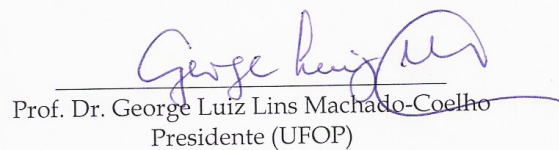 George Luiz
Prof. Dr. George Luiz Lins Machado-Coelho
Presidente (UFOP)